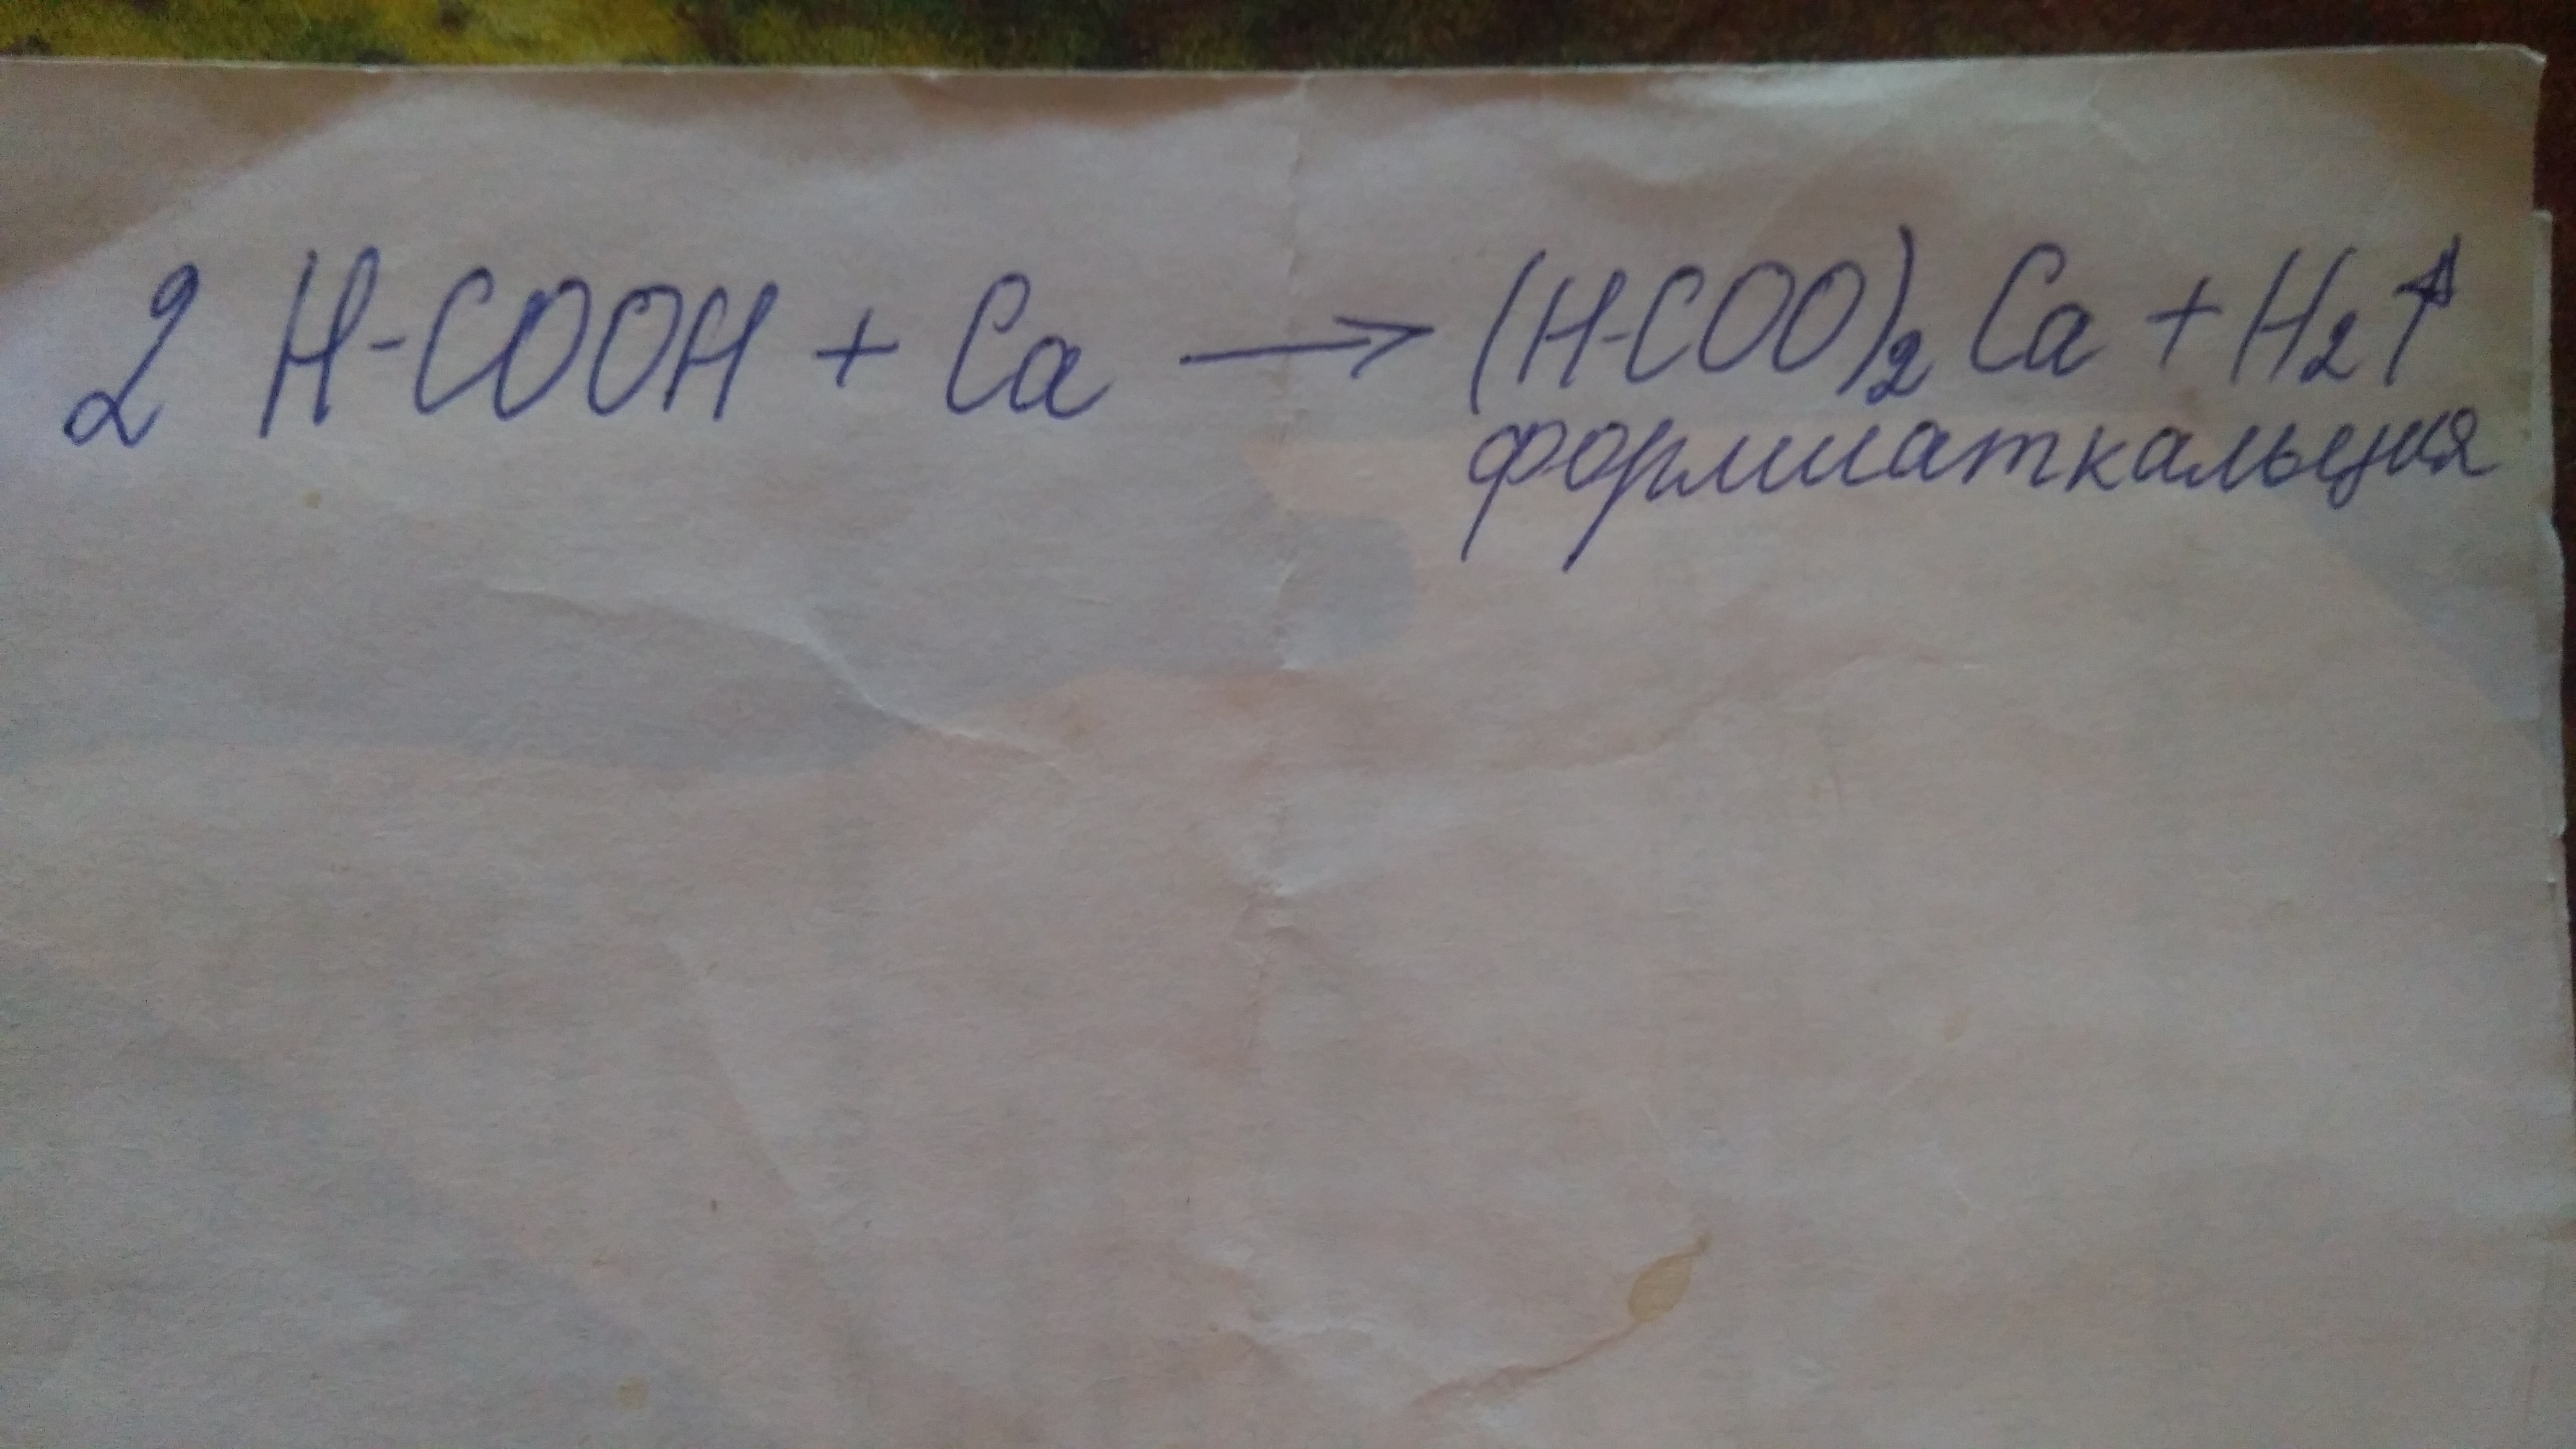 2 H-COOH + Ca → (H-COO)₂ Ca + H₂↑
формиат кальция